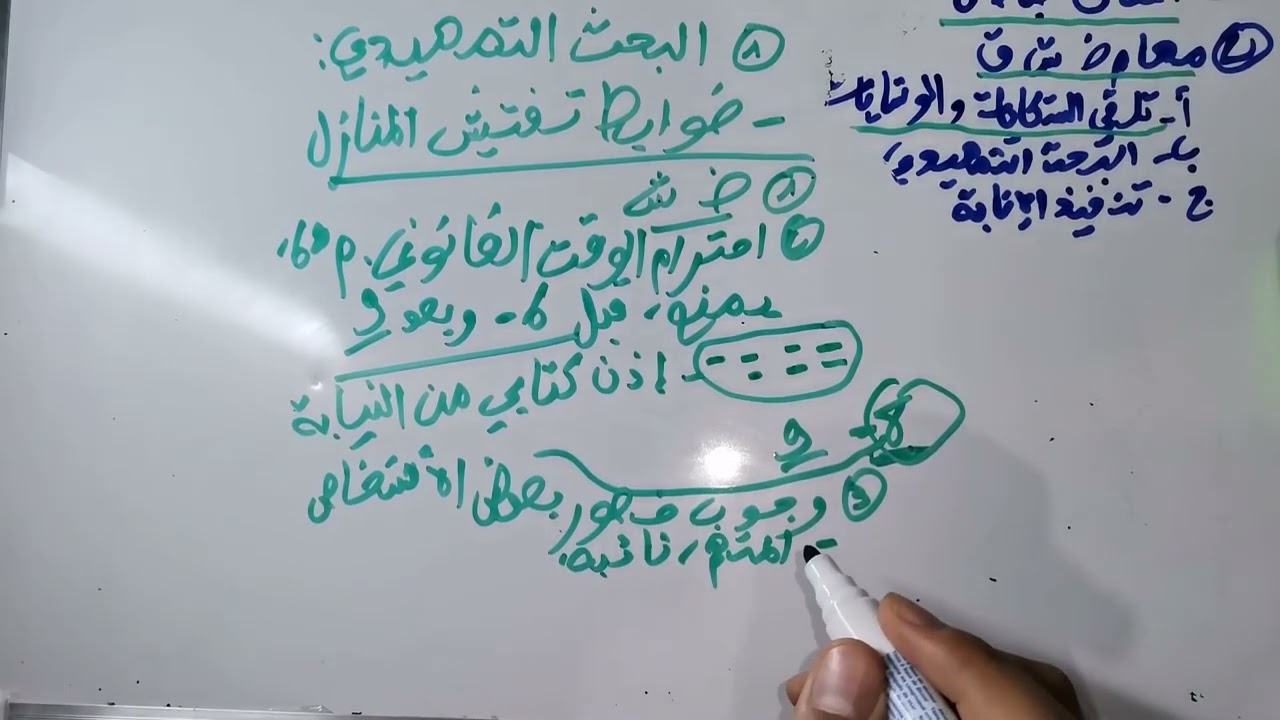 ② معاوض ش ق
أ- تلقي الشكايات والوشايات
ب- البحث التمهيدي
ج- تنفيذ الإنابة
① البحث التمهيدي:
- ضوابط تفتيش المنازل
① ض ش
② احترام الوقت القانوني. م
قبل 6- وبعد 9
- إذن كتابي من النيابة
9
③ وجوب حضور بعض الأشخاص
- المتهم، نائبه.